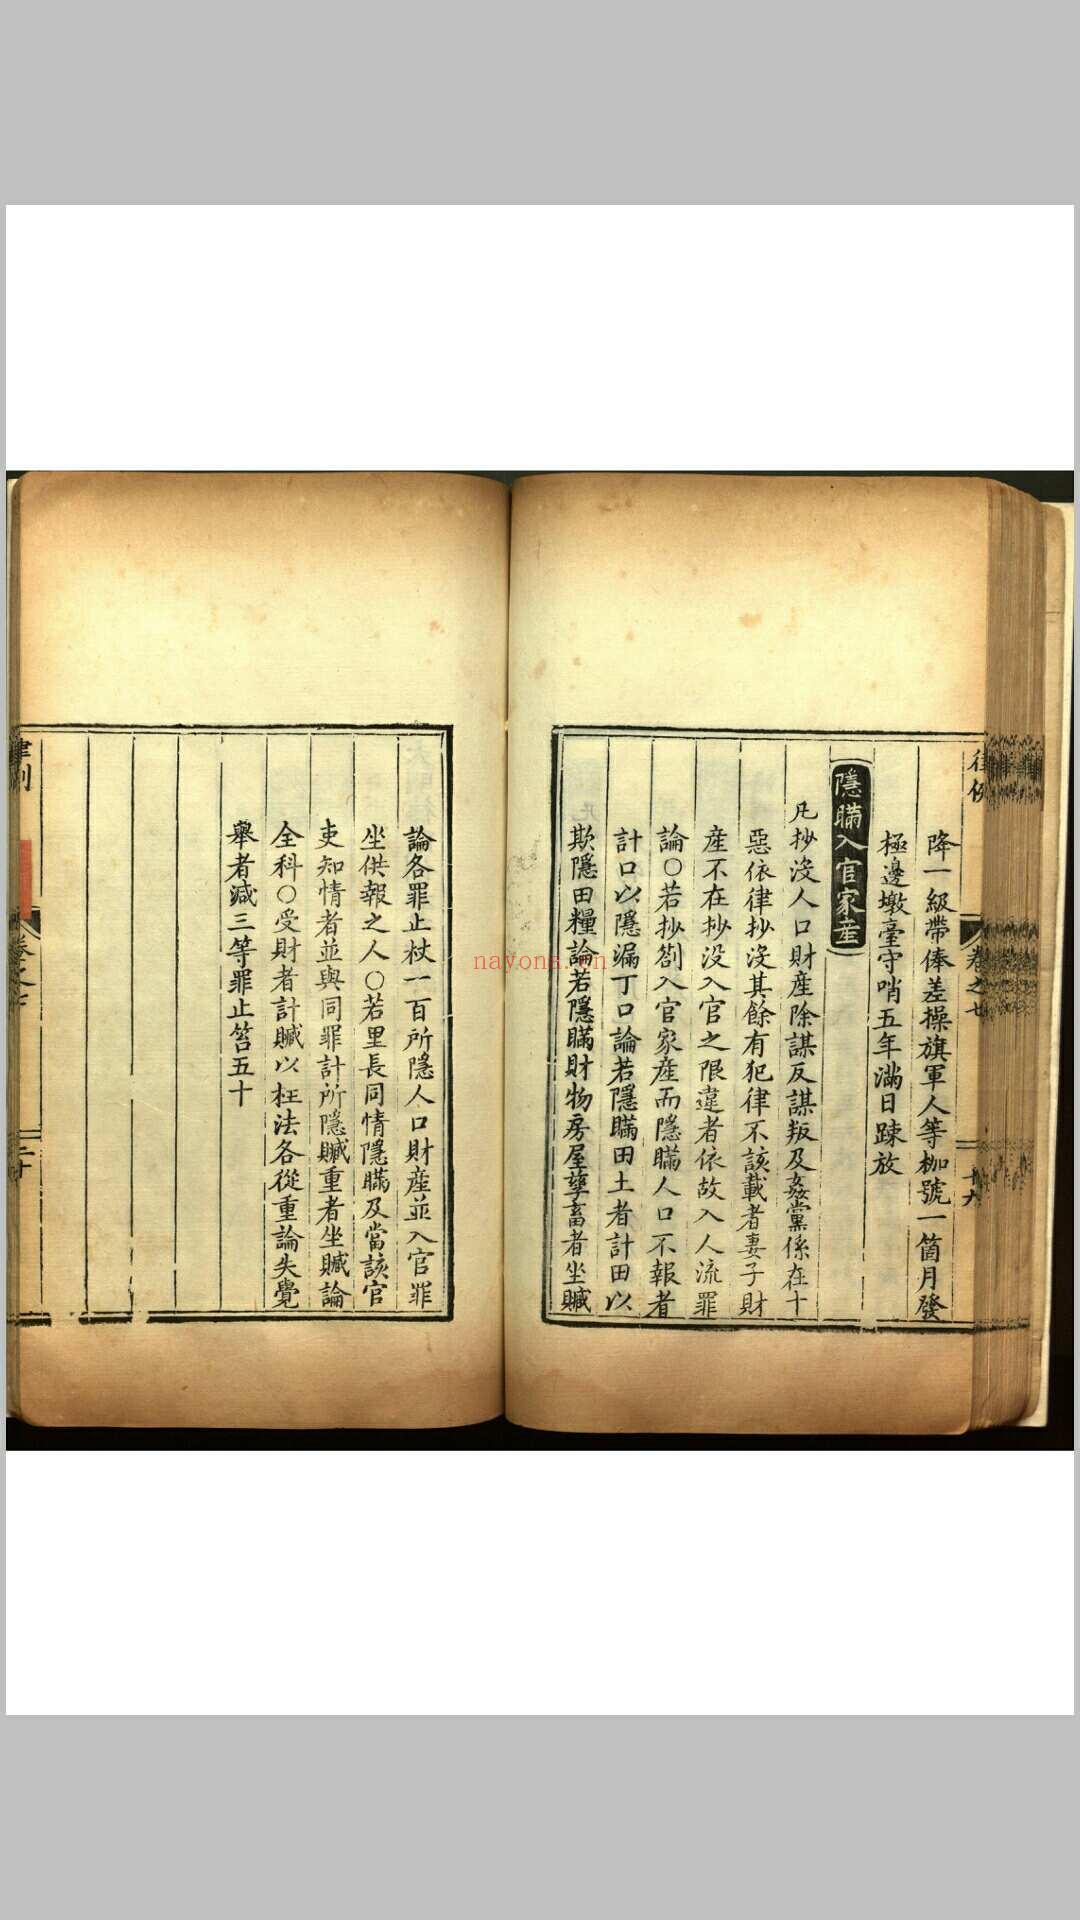 降一級帶俸差操旗軍人等枷號一箇月發
極邊墩臺守哨五年滿日踈放
隱瞞入官家產
凡抄沒人口財產除謀反謀叛及姦黨係在十
惡依律抄沒其餘有犯律不該載者妻子財
產不在抄沒入官之限違者依故入人流罪
論○若抄劄入官家產而隱瞞人口不報者
計口以隱漏丁口論若隱瞞田土者計田以
欺隱田糧論若隱瞞財物房屋孳畜者坐贓
論各罪止杖一百所隱人口財產並入官罪
坐供報之人○若里長同情隱瞞及當該官
吏知情者並與同罪計所隱贓重者坐贓論
全科○受財者計贓以枉法各從重論失覺
舉者減三等罪止笞五十
律例
卷之七
nayona.cn